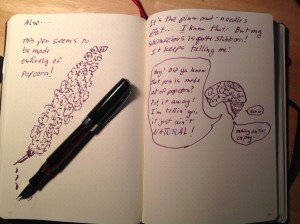 Also...
This pen seems to
be made
entirely of
popcorn!
It's the pins-and-needles
effect... I know that! But my
subconscious is quite stubborn!
It keeps telling me:
Hey! Did you know
that pen is made
out of popcorn?
Put it away!
I'm tellin' ya,
it just ain't
NATURAL!